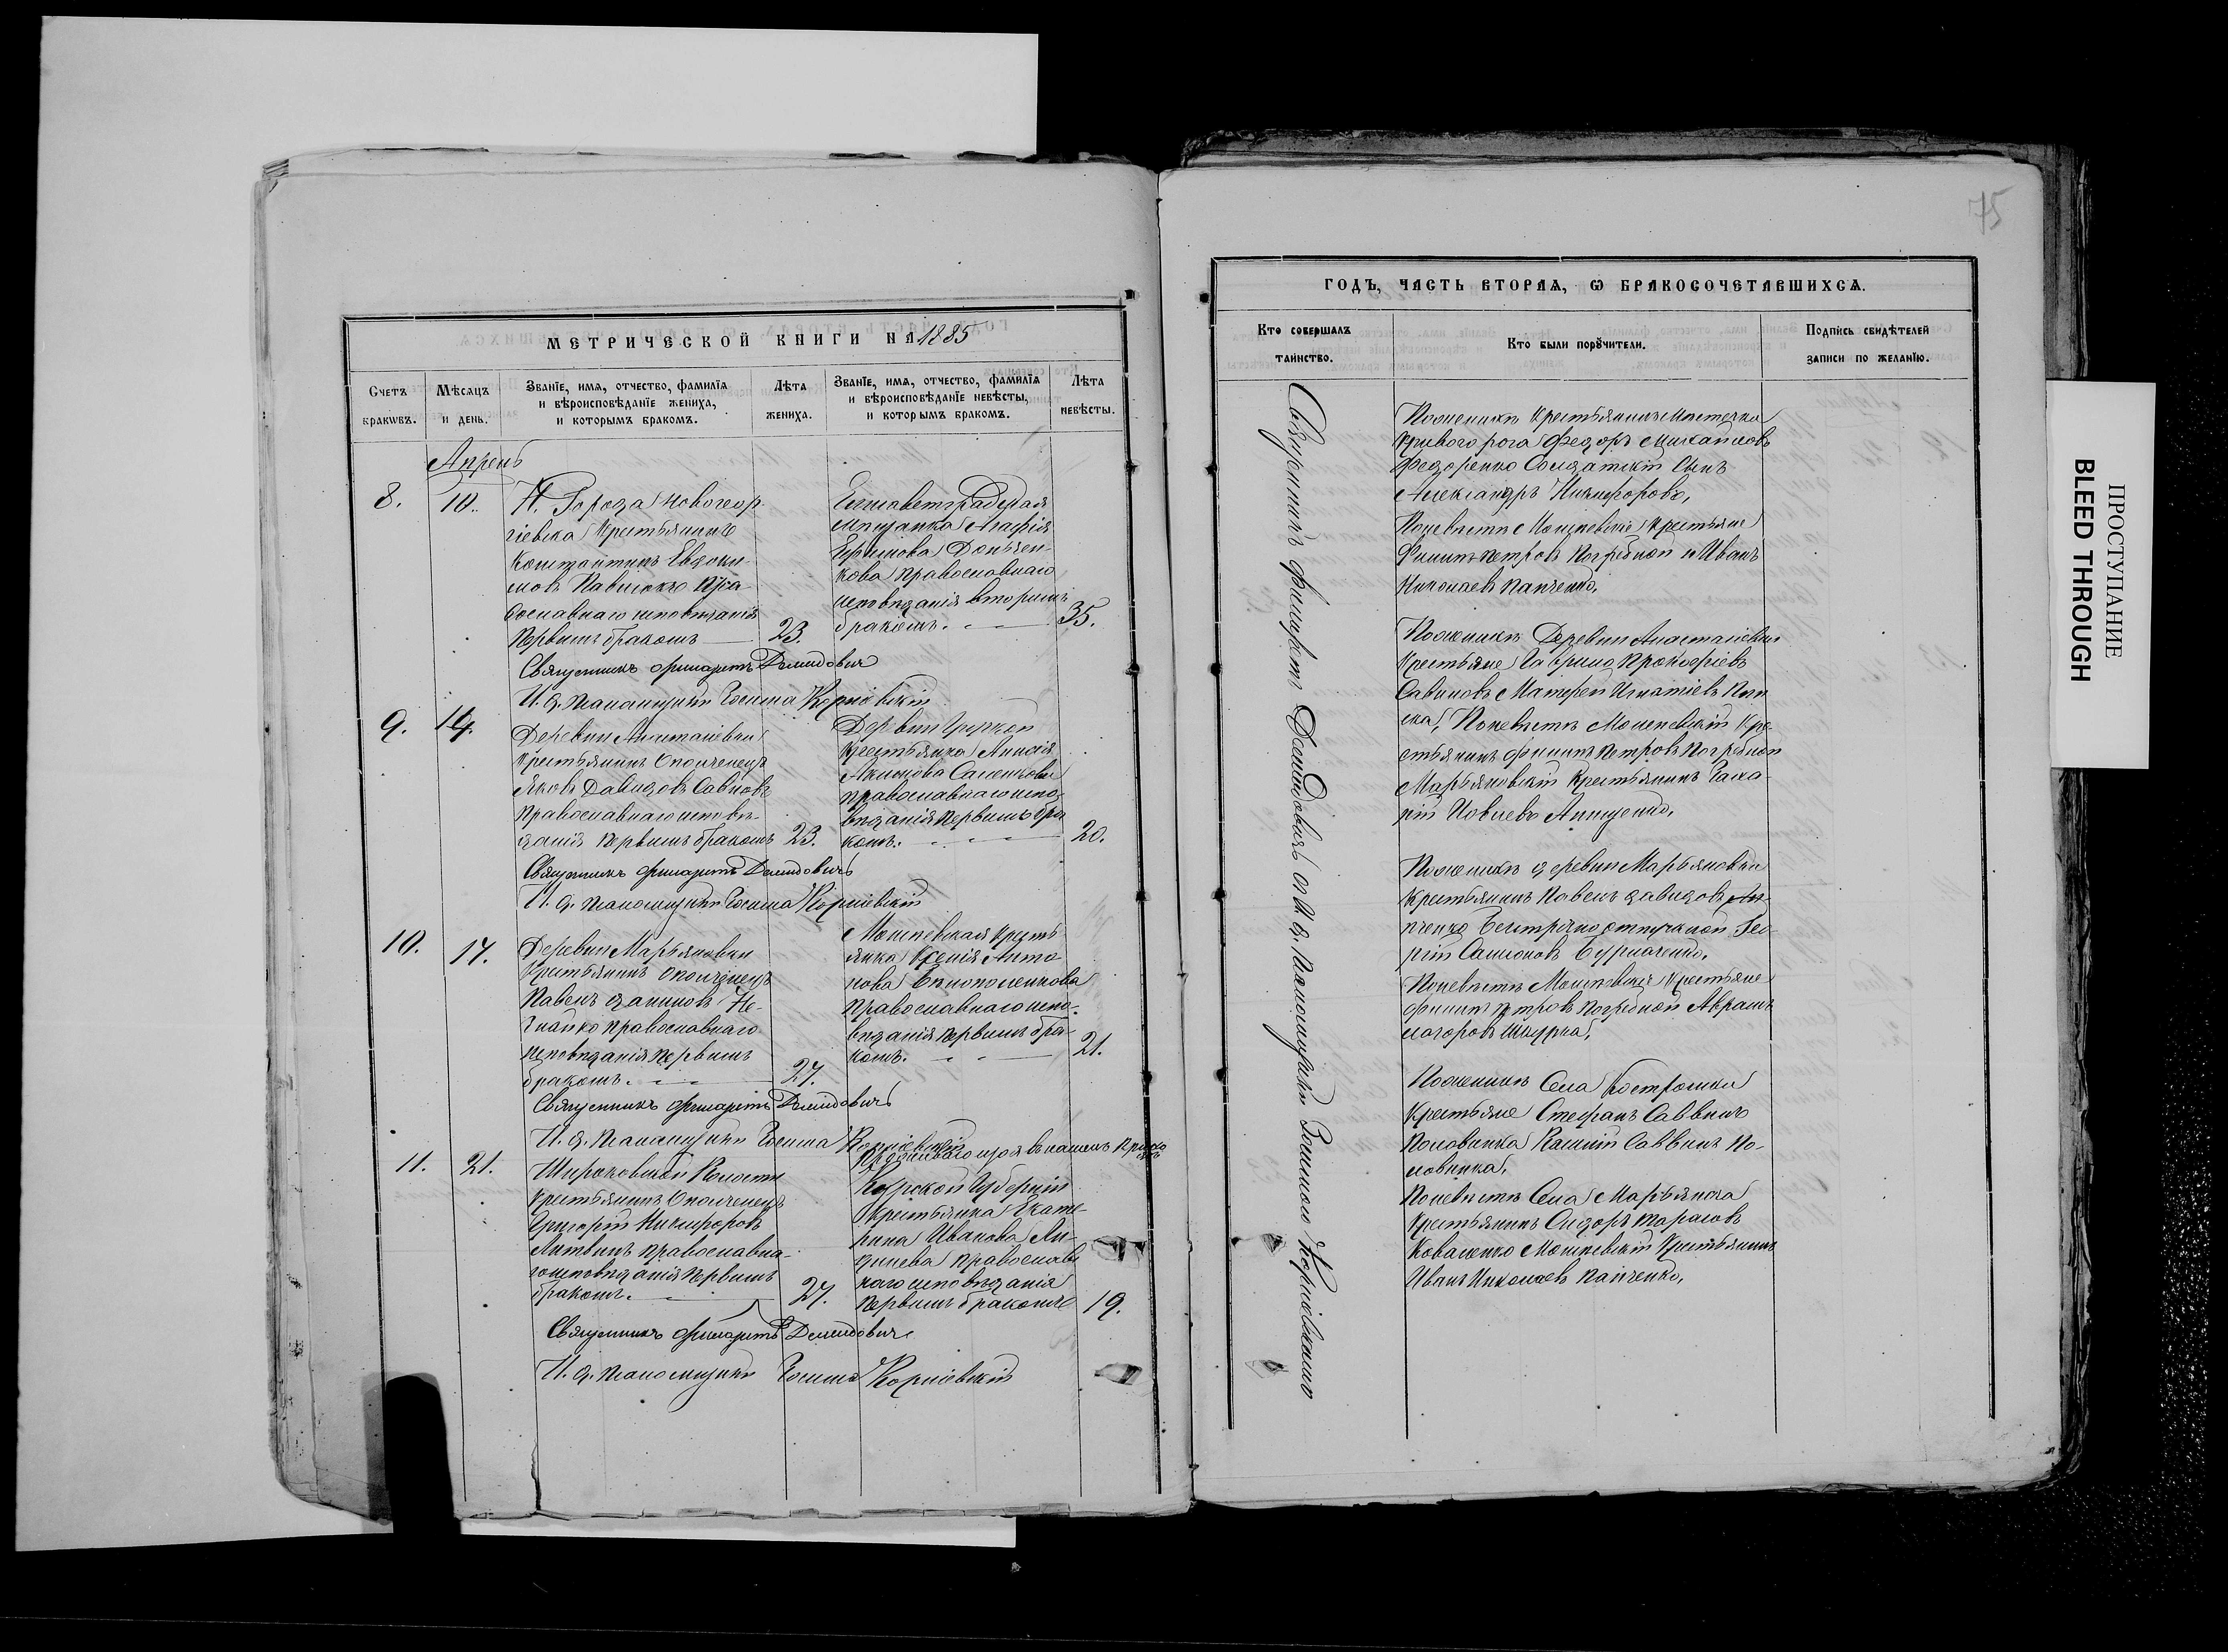 75
МЕТРИЧЕСКОЙ КНИГИ НА 1885
Счетъ браковъ.
Мѣсяцъ и день.
Званїе, имѧ, отчество, фамилїѧ
и вѣроисповѣданїе жениха,
и которымъ бракомъ.
Лѣта жениха.
Званїе, имѧ, отчество, фамилїѧ
и вѣроисповѣданїе невѣсты,
и которымъ бракомъ.
Лѣта невѣсты.
Апрель
8.
10.
Н. Города Новогеор-
гіевска Крестьянинъ
Константинъ Евдоки-
мовъ Павлюкъ Пра-
вославнаго исповѣданія
Первымъ бракомъ
23.
Елисаветградская
Мѣщанка Агафія
Ефимова
кова православнаго
исповѣданія вторымъ
бракомъ.
35.
Священникъ Филаретъ Демидовичъ
И. д. псаломщика Зосима Корніевскій
9.
14.
Деревни Анастасіевки
Крестьянинъ Ополченецъ
Яковъ Давидовъ Савновъ
православнаго исповѣ-
данія первымъ бракомъ
23.
Деревни
Крестьянка Анисія
Акимова
православнаго испо-
вѣданія первымъ бра-
комъ.
20.
Священникъ Филаретъ Демидовичъ
И. д. псаломщика Зосима Корніевскій
10.
17.
Деревни Марьяновки
Крестьянинъ Ополченецъ
Павелъ Даниловъ Не-
гнайко православнаго
исповѣданія первымъ
бракомъ.
27.
Моисеевская Кресть-
янка Ксенія Анто-
нова
православнаго испо-
вѣданія первымъ бра-
комъ.
21.
Священникъ Филаретъ Демидовичъ
И. д. псаломщика Зосима Корніевскій
11.
21.
Широковской Волости
Крестьянинъ Ополченецъ
Григорій Никифоровъ
Литвинъ православна-
го исповѣданія первымъ
бракомъ.
27.
въ нашемъ
Курской Губерніи
Крестьянка Екате-
рина Иванова
православ-
наго исповѣданія
первымъ бракомъ
19.
Священникъ Филаретъ Демидовичъ
И. д. псаломщика Зосима Корніевскій
ГОДЪ, ЧАСТЬ ВТОРАѦ, Ѡ БРАКОСОЧЕТАВШИХСѦ.
Кто совершалъ таинство.
Кто были порꙋчители.
Подпись свидѣтелей записи по желанїю.
Священникъ Филаретъ Демидовичъ съ И. д. псаломщика Зосимою Корніевскимъ
По женихѣ Крестьянинъ Мѣстечка
Кривого рога Федоръ Михайловъ
Федоренко Солдатскій Сынъ
Александръ Никифоровъ,
По невѣстѣ Моисеевскіе Крестьяне
Филипъ Петровъ Погребной и Иванъ
Николаевъ Панченко,
По женихѣ Деревни Анастасіевки
Крестьяне Гавриилъ Прокофіевъ
Савиновъ Матфей Игнатіевъ
По невѣстѣ Моисеевскій Кре-
стьянинъ Филипъ Петровъ Погребной
Марьяновскій Крестьянинъ
Іовлевъ Анищенко,
По женихѣ деревни Марьяновки
Крестьянинъ Павелъ Давидовъ
Безсрочно отпускной Геор-
гій Самсоновъ
По невѣстѣ Моисеевскіе Крестьяне
Филипъ Петровъ Погребной Аврамъ
По женихѣ Села Костромки
Крестьяне Стефанъ Саввинъ
Половинка Саввинъ По-
ловинка,
По невѣстѣ Села Марьянска
Крестьянинъ Сидоръ Тарасовъ
Коваленко Моисеевскій Крестьянинъ
Иванъ Николаевъ Панченко,
ПРОСТУПАНИЕ
BLEED THROUGH